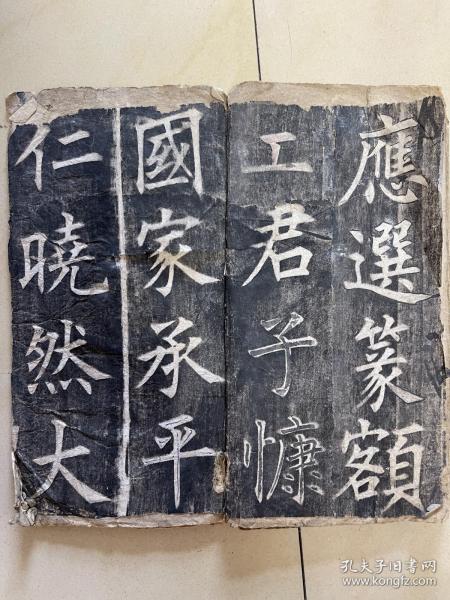 應選篆額
工君子慷
國家承平
仁曉然大
孔夫子旧书网
www.kongfz.com